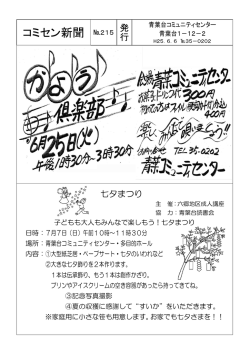 コミセン新聞
№215
発行
青葉台コミュニティセンター
青葉台1－12－2
H25.6.6 ℡35－0202
かよう倶楽部
6月25日(火)
午後1時30分～3時30分
会場 青葉台コミュニティセンター
お茶、ドリンク付 300円
TEL 35-0202
青葉台コミュニティセンター
七夕まつり
主 催：六郷地区成人講座
協 力：青葉台読書会
子どもも大人もみんなで楽しもう！七夕まつり
日時：7月7日（日）午前10時～11時30分
場所：青葉台コミュニティセンター・多目的ホール
内容：①大型紙芝居・ペープサート・七夕のいわれなど
②大きな七夕飾りを2本作ります。
1本は伝承飾り。もう1本は創作かざり。
プリンやアイスクリームの空き容器があったら持ってきてね。
③記念写真撮影
④夏の収穫に感謝して“すいか”をいただきます。
※家庭用に小さな笹も用意します。お家でも七夕さまを！！